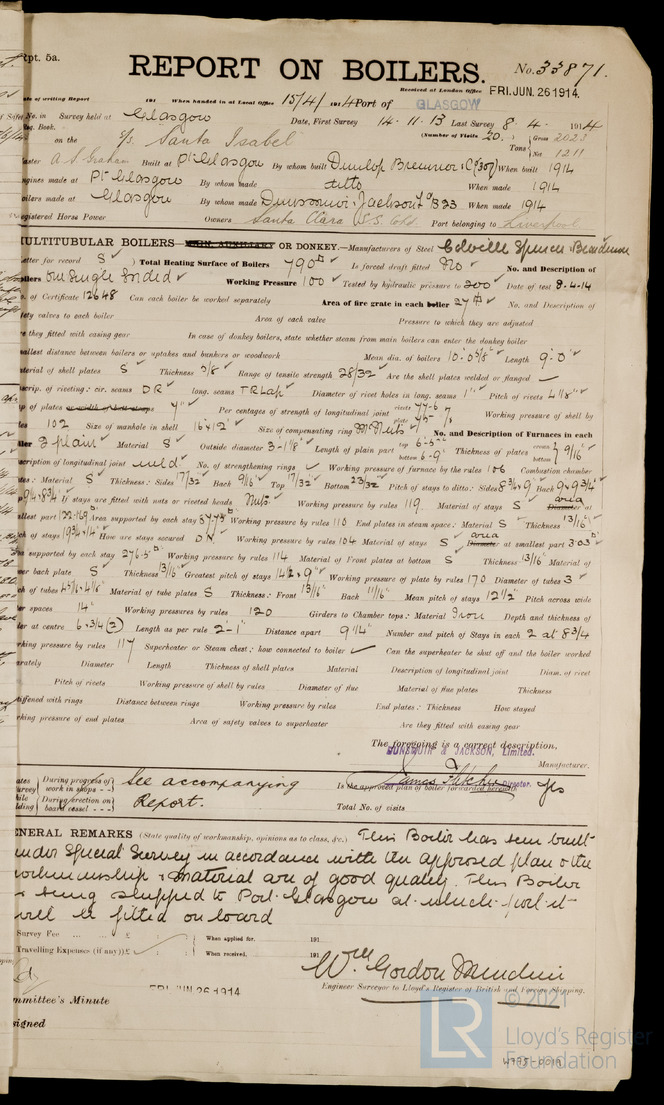 Rpt. 5a.
REPORT ON BOILERS.
No. 33871.
Received at London Office FRI. JUN. 26 1914
of writing Report 191 When handed in at Local Office 15/4/ 1914 Port of GLASGOW
No. in Survey held at Glasgow Date, First Survey 14-11-13 Last Survey 8-4-1914
Reg. Book.
on the S/S. Santa Isabel (Number of Visits 20.) Tons Gross 2023 Net 1211
Master A. S. Graham Built at Pt Glasgow By whom built Dunlop Bremner & Co (307) When built 1914
Engines made at Pt Glasgow By whom made ditto When made 1914
Boilers made at Glasgow By whom made Dunsmuir & Jackson Ld No B33 When made 1914
Registered Horse Power Owners Santa Clara S.S. Co Ld. Port belonging to Liverpool
MULTITUBULAR BOILERS MAIN, AUXILIARY OR DONKEY.—Manufacturers of Steel Colville Spencer & Beardmore
Letter for record S) Total Heating Surface of Boilers 790 Is forced draft fitted No No. and Description of
Boilers One Single Ended Working Pressure 100 Tested by hydraulic pressure to 200 Date of test 8-4-14
No. of Certificate 12648 Can each boiler be worked separately Area of fire grate in each boiler 27 No. and Description of
safety valves to each boiler Area of each valve Pressure to which they are adjusted
Are they fitted with easing gear In case of donkey boilers, state whether steam from main boilers can enter the donkey boiler
Smallest distance between boilers or uptakes and bunkers or woodwork Mean dia. of boilers 10'-0 5/8" Length 9'-0"
Material of shell plates S Thickness 5/8 Range of tensile strength 28/32 Are the shell plates welded or flanged —
Descrip. of riveting: cir. seams DR long. seams TR Lap Diameter of rivet holes in long. seams 1" Pitch of rivets 4 1/8"
Lap of plates or width of butt straps 7" Per centages of strength of longitudinal joint rivets 77.6 plate 75. Working pressure of shell by
rules 102 Size of manhole in shell 16"x12" Size of compensating ring No. and Description of Furnaces in each
boiler 3 plain Material S Outside diameter 3'-1 1/8" Length of plain part top 6'-5" bottom 6'-9" Thickness of plates crown bottom 9/16"
Description of longitudinal joint weld No. of strengthening rings Working pressure of furnace by the rules 106 Combustion chamber
plates: Material S Thickness: Sides 17/32 Back 9/16 Top 17/32 Bottom 23/32 Pitch of stays to ditto: Sides 8 3/4 x 9 Back 9 x 9 3/4
If stays are fitted with nuts or riveted heads Nuts Working pressure by rules 119. Material of stays S Diameter area at
smallest part Area supported by each stay 87.75 Working pressure by rules 110 End plates in steam space: Material S Thickness 13/16
Pitch of stays How are stays secured DN Working pressure by rules 104 Material of stays S Diameter area at smallest part 3.03
Area supported by each stay 276.5 Working pressure by rules 114 Material of Front plates at bottom S Thickness 13/16 Material of
Lower back plate S Thickness 13/16 Greatest pitch of stays Working pressure of plate by rules 170 Diameter of tubes 3
Pitch of tubes 4 5/16 x 4 1/16 Material of tube plates S Thickness: Front 13/16 Back 11/16 Mean pitch of stays 12 1/2 Pitch across wide
water spaces 14" Working pressures by rules 120 Girders to Chamber tops: Material Iron Depth and thickness of
girder at centre 6 x 3/4 (2) Length as per rule 2'-1" Distance apart 9 1/4" Number and pitch of Stays in each 2 at 8 3/4
Working pressure by rules 117 Superheater or Steam chest; how connected to boiler Can the superheater be shut off and the boiler worked
separately Diameter Length Thickness of shell plates Material Description of longitudinal joint Diam. of rivet
Pitch of rivets Working pressure of shell by rules Diameter of flue Material of flue plates Thickness
stiffened with rings Distance between rings Working pressure by rules End plates: Thickness How stayed
Working pressure of end plates Area of safety valves to superheater Are they fitted with easing gear
The foregoing is a correct description,
DUNSMUIR & JACKSON, Limited.
Manufacturer.
Director.
During progress of work in shops See accompanying Is the approved plan of boiler forwarded herewith Yes
During erection on board vessel Report. Total No. of visits
GENERAL REMARKS (State quality of workmanship, opinions as to class, &c.) This Boiler has been built
under Special Survey in accordance with the approved plan & the
workmanship & material are of good quality. This Boiler
is being shipped to Port-Glasgow at which port it
will be fitted on board
Survey Fee ... ... £ When applied for. 191
Travelling Expenses (if any) £ When received. 191
Wm Gordon
Engineer Surveyor to Lloyd's Register of British and Foreign Shipping.
FRI. JUN. 26 1914
Committee's Minute
Assigned
LR
© 2021
Lloyd's Register
Foundation
W795-0019